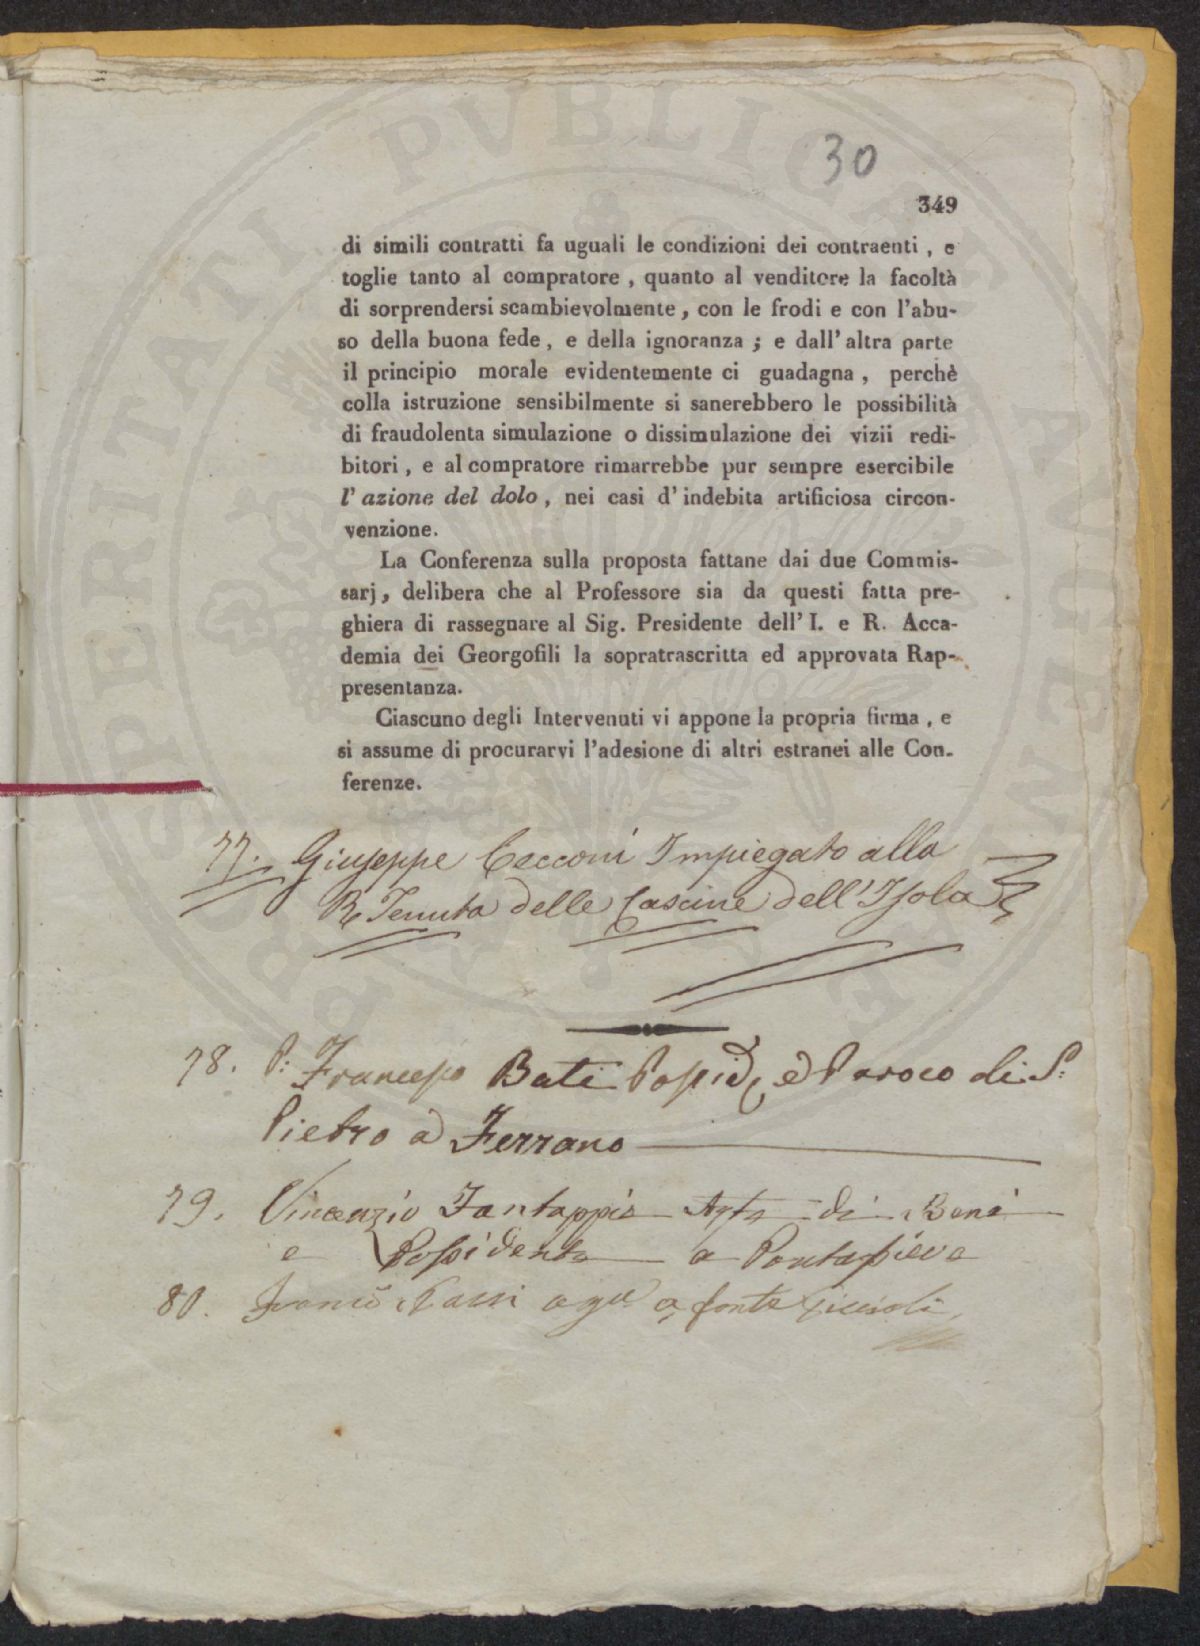 30
349
di simili contratti fa uguali le condizioni dei contraenti , e
toglie tanto al compratore , quanto al venditore la facoltà
di sorprendersi scambievolmente , con le frodi e con l'abu-
so della buona fede , e della ignoranza ; e dall' altra parte
il principio morale evidentemente ci guadagna , perchè
colla istruzione sensibilmente si sanerebbero le possibilità
di fraudolenta simulazione o dissimulazione dei vizii redi-
bitori , e al compratore rimarrebbe pur sempre esercibile
l' azione del dolo , nei casi d' indebita artificiosa circon-
venzione.
La Conferenza sulla proposta fattane dai due Commis-
sarj , delibera che al Professore sia da questi fatta pre-
ghiera di rassegnare al Sig. Presidente dell' I. e R. Acca-
demia dei Georgofili la sopratrascritta ed approvata Rap-
presentanza.
Ciascuno degli Intervenuti vi appone la propria firma , e
si assume di procurarvi l'adesione di altri estranei alle Con-
ferenze.
77. Giuseppe Cecconi Impiegato alla
R Tenuta delle Cascine dell'Isola
78. P: Francesco Bati Possid e Paroco di S:
Pietro a Ferrano
79. Vincenzio Fantappiè Agte di Beni
e Possidente a Pontassieve
80. a fonte